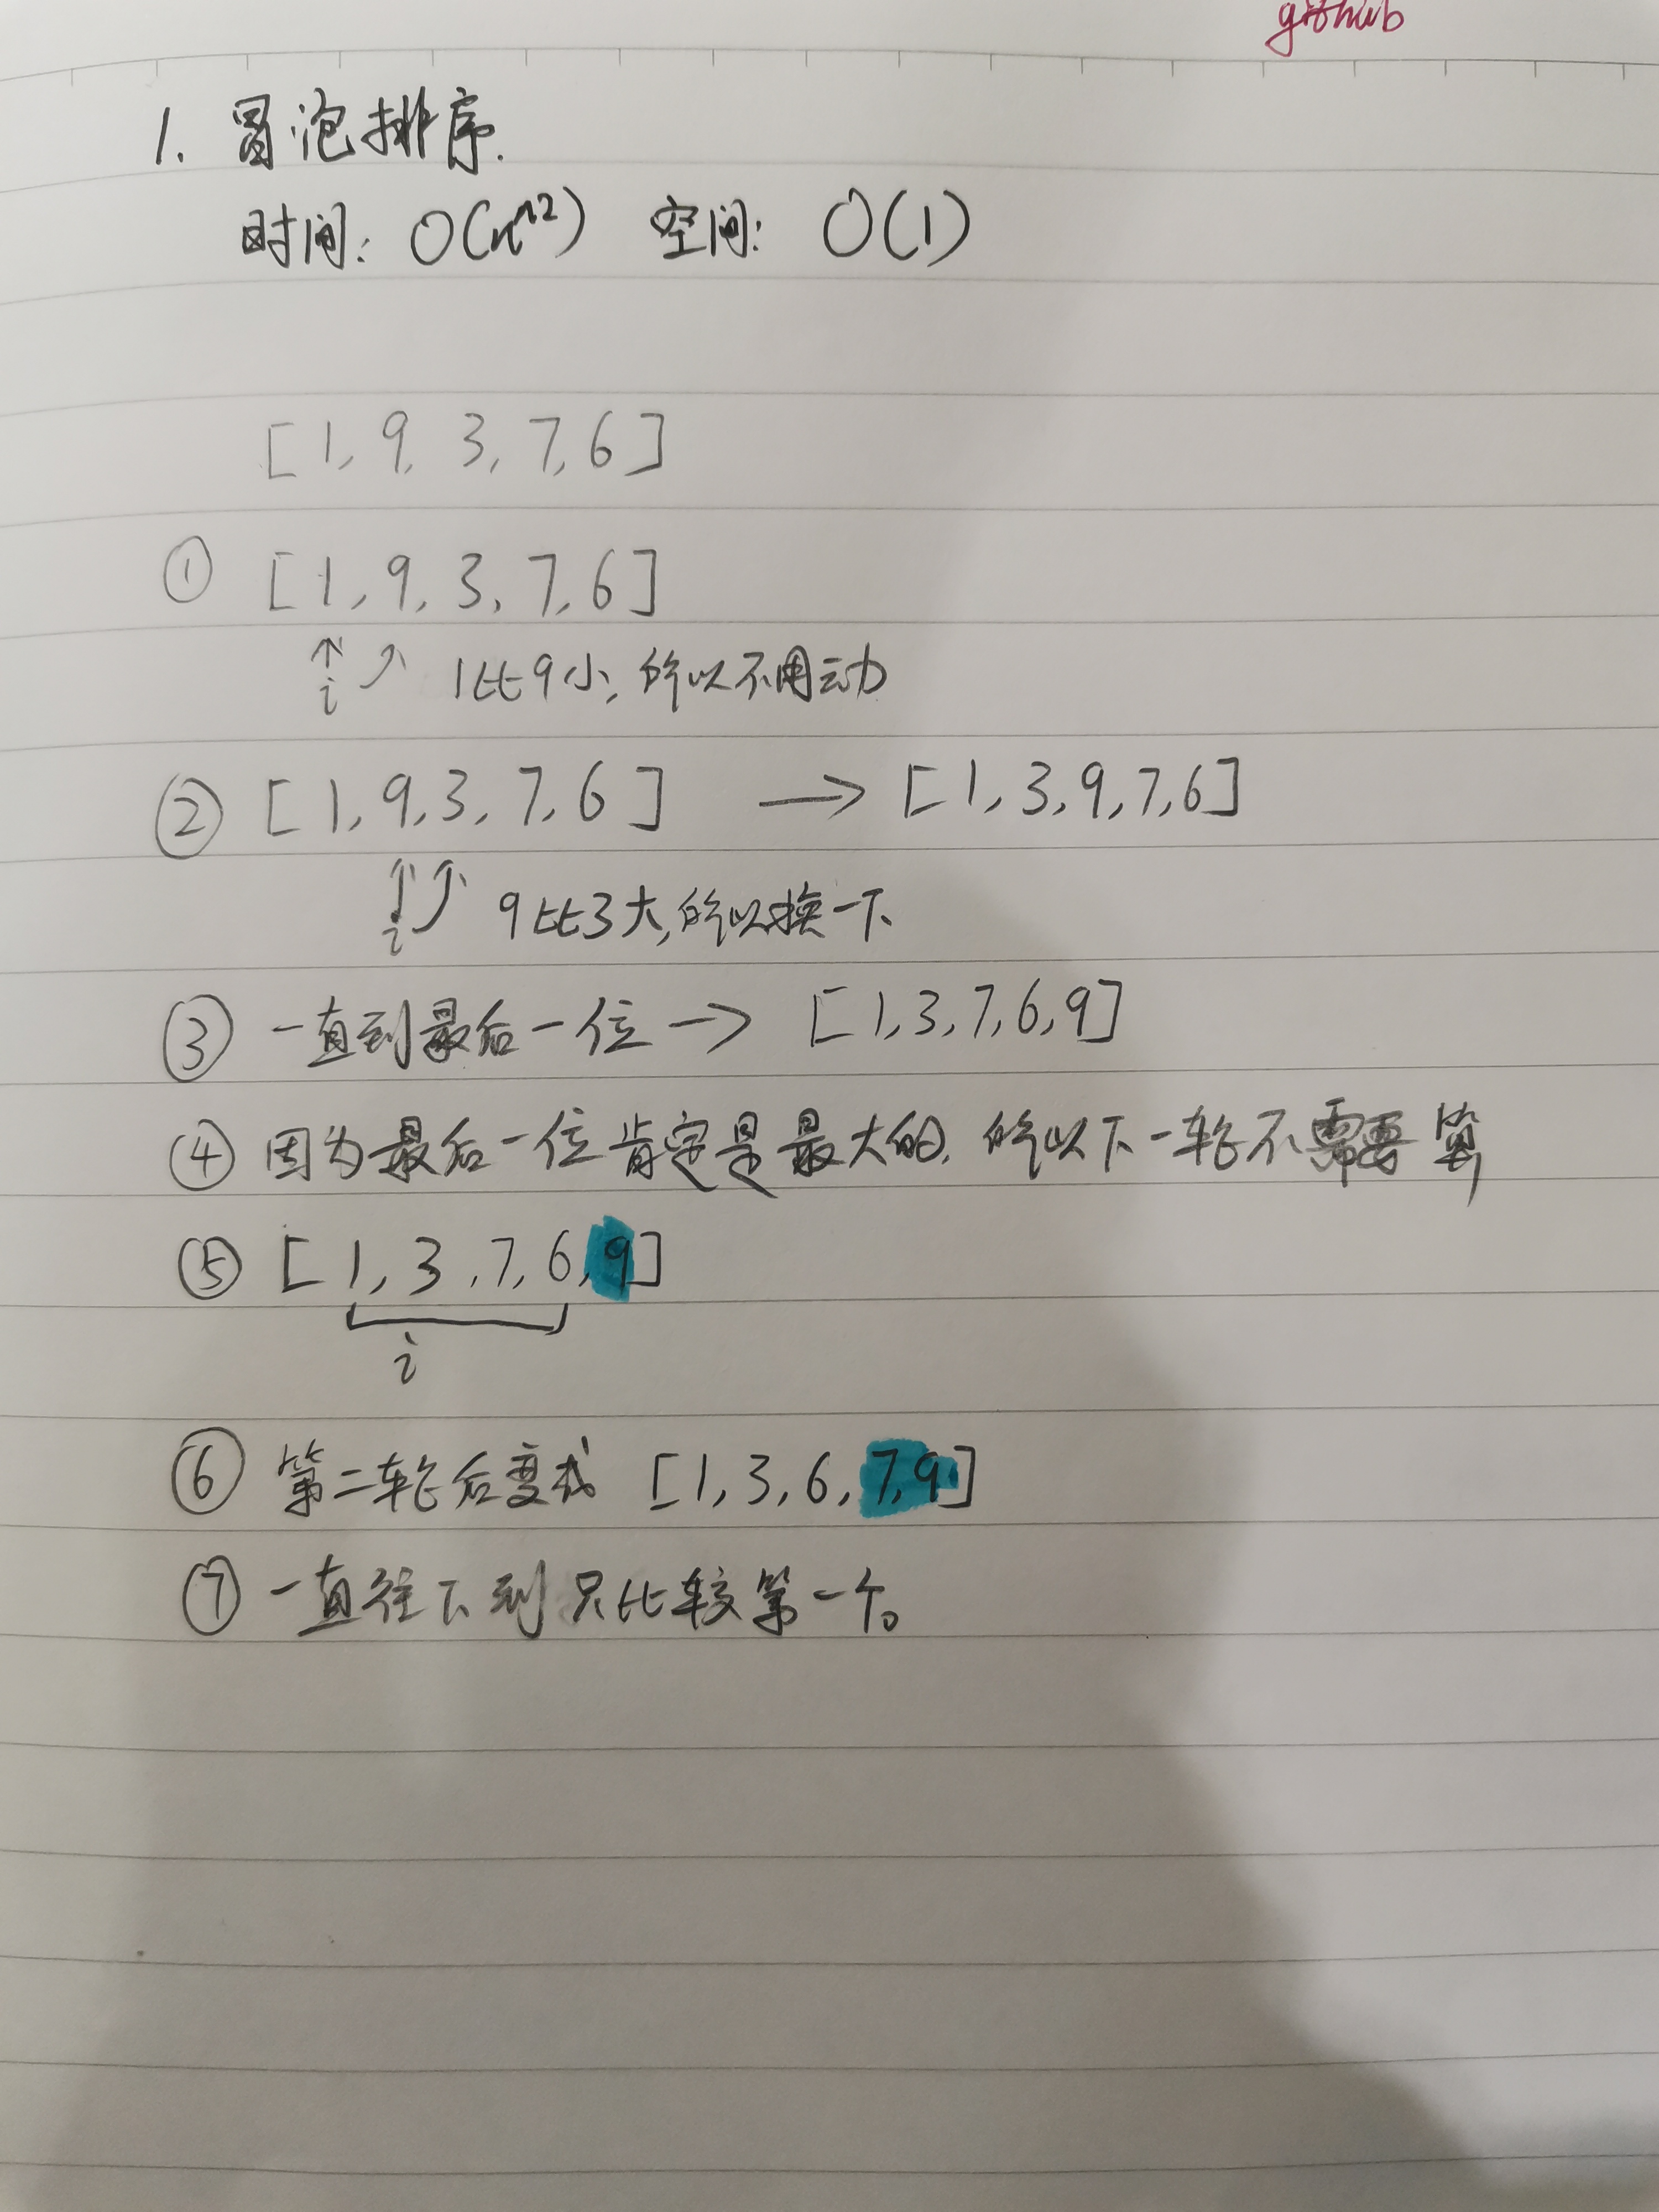 github
1. 冒泡排序.
时间: O(n^2) 空间: O(1)
[1, 9, 3, 7, 6]
① [1, 9, 3, 7, 6]
i 1比9小, 所以不用动
② [1, 9, 3, 7, 6] → [1, 3, 9, 7, 6]
i 9比3大, 所以换一下
③ 一直到最后一位 → [1, 3, 7, 6, 9]
④ 因为最后一位肯定是最大的, 所以下一轮不需要算
⑤ [1, 3, 7, 6, 9]
i
⑥ 第二轮后变成 [1, 3, 6, 7, 9]
⑦ 一直往下到只比较第一个。